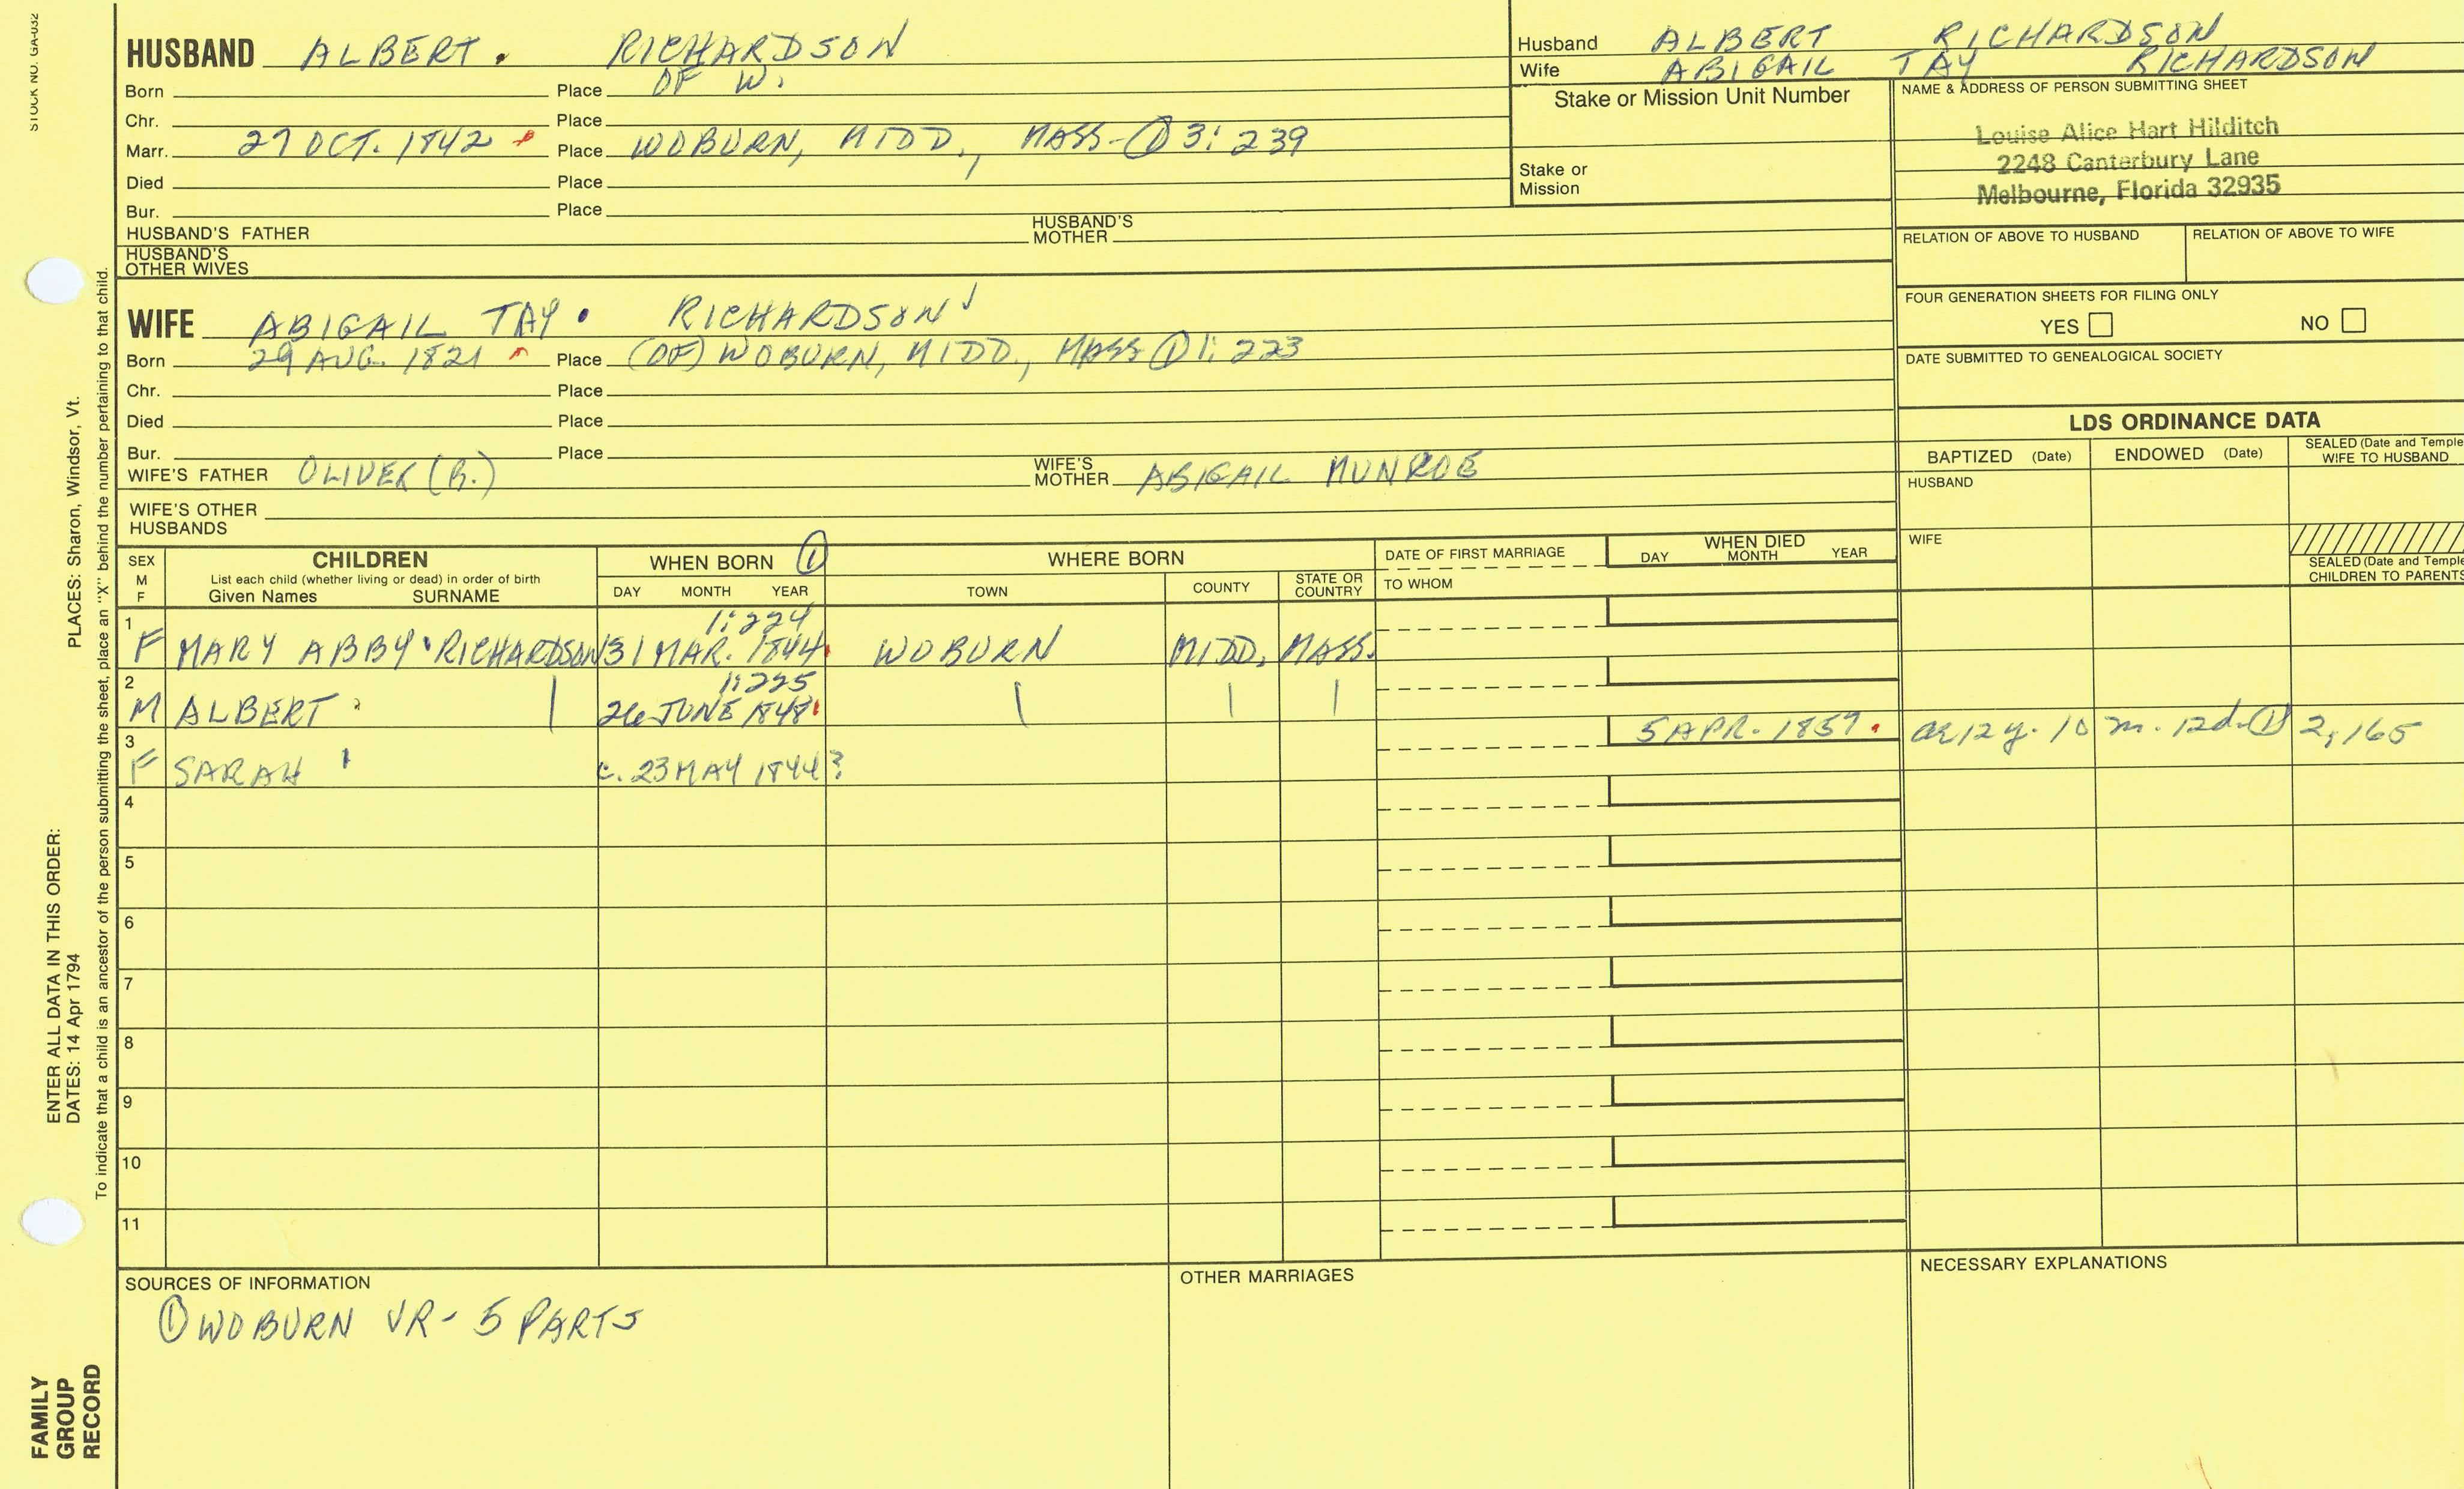 STOCK NO. GA-032
HUSBAND ALBERT . RICHARDSON
Born Place OF W.
Chr. Place
Marr. 27 OCT. 1842 Place WOBURN, MIDD., MASS-① 3:239
Died Place
Bur. Place
HUSBAND'S FATHER HUSBAND'S MOTHER
HUSBAND'S OTHER WIVES
Husband ALBERT RICHARDSON
Wife ABIGAIL TAY RICHARDSON
Stake or Mission Unit Number
Stake or Mission
NAME & ADDRESS OF PERSON SUBMITTING SHEET
Louise Alice Hart Hilditch
2248 Canterbury Lane
Melbourne, Florida 32935
RELATION OF ABOVE TO HUSBAND RELATION OF ABOVE TO WIFE
FOUR GENERATION SHEETS FOR FILING ONLY
YES NO
DATE SUBMITTED TO GENEALOGICAL SOCIETY
WIFE ABIGAIL TAY . RICHARDSON
Born 29 AUG. 1821 Place (OF) WOBURN, MIDD., MASS ① 1:223
Chr. Place
Died Place
Bur. Place
WIFE'S FATHER OLIVER (R.) WIFE'S MOTHER ABIGAIL MUNROE
WIFE'S OTHER HUSBANDS
LDS ORDINANCE DATA
BAPTIZED (Date) ENDOWED (Date) SEALED (Date and Temple
WIFE TO HUSBAND
HUSBAND
WIFE
SEALED (Date and Temple
CHILDREN TO PARENTS
SEX M F
CHILDREN
List each child (whether living or dead) in order of birth
Given Names SURNAME
WHEN BORN ①
DAY MONTH YEAR
WHERE BORN
TOWN COUNTY STATE OR COUNTRY
DATE OF FIRST MARRIAGE
TO WHOM
WHEN DIED
DAY MONTH YEAR
1 1:224
F MARY ABBY RICHARDSON 31 MAR. 1844 WOBURN MIDD. MASS.
2 1:225
M ALBERT 26 JUNE 1848
3 5 APR. 1857 ae 12 y. 10 m. 12 d. ① 2,165
F SARAH c. 23 MAY 1844?
4
5
6
7
8
9
10
11
SOURCES OF INFORMATION
① WOBURN VR- 5 PARTS
OTHER MARRIAGES
NECESSARY EXPLANATIONS
PLACES: Sharon, Windsor, Vt.
ENTER ALL DATA IN THIS ORDER:
DATES: 14 Apr 1794
To indicate that a child is an ancestor of the person submitting the sheet, place an "X" behind the number pertaining to that child.
FAMILY
GROUP
RECORD